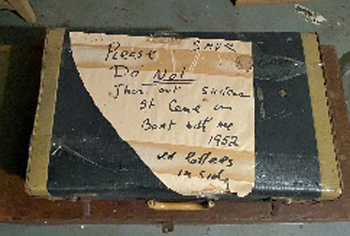 Please SAVE
Do Not
Throw out Suitcase
It Came on
Boat with me
1952
old letters
inside